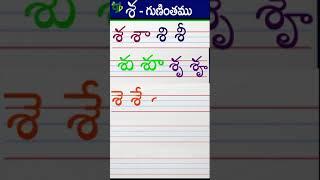 శ - గుణింతము
శ శా శి శీ
శు శూ శృ శౄ
శె శే